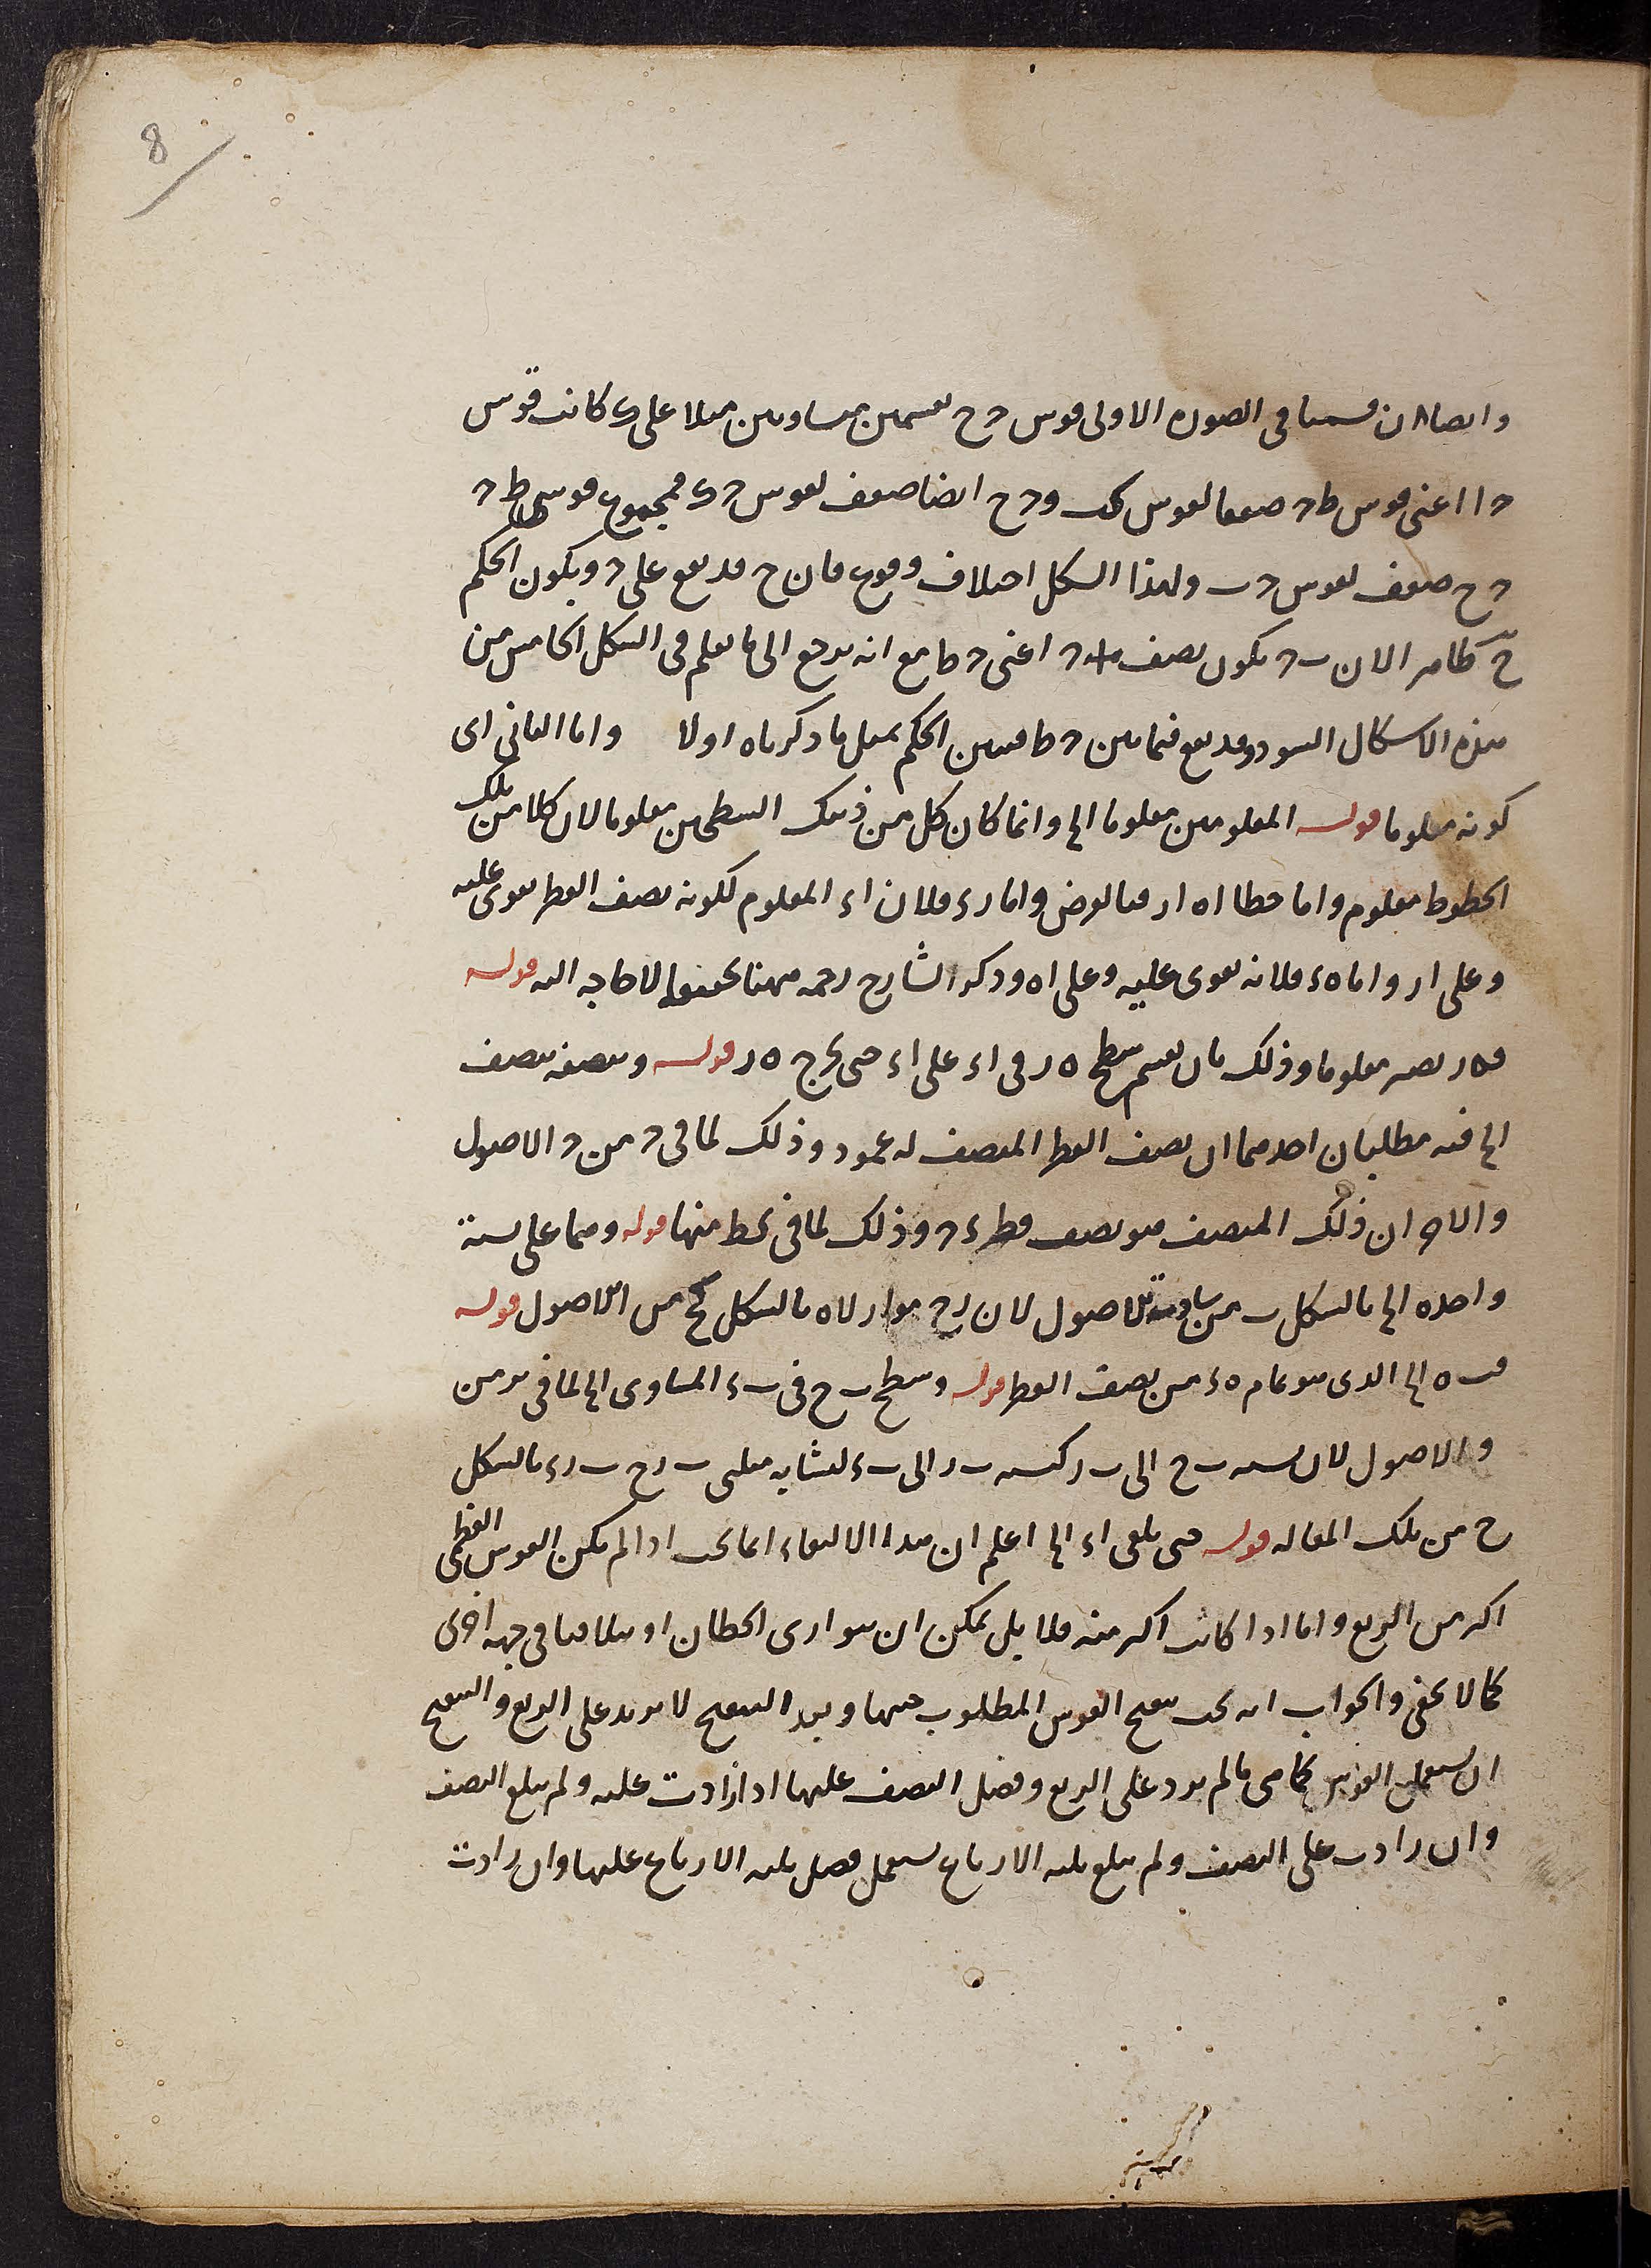 8
وايضا ان قسمنا فى الصوره الاولى قوس د ح بقسمين متساويين مثلا على ى كانت قوس
د ا اعنى قوس ط د ضعفا لقوس ك و د ح ايضا ضعف لقوس د ى فمجموع قوسى ط د
د ح ضعف لقوس د ب ولهذا الشكل اختلاف وقوع فان ح قد يقع على د ويكون الحكم
ح ظاهر الان ب د يكون نصف د اعنى د ط مع انه يرجع الى ما يعلم فى الشكل الخامس من
هذه الاشكال وقد يقع فيما بين د ط فيبين الحكم بمثل ما ذكرناه اولا واما الثانى اى
كونه معلوما قوله المعلومين معلوما الخ وانما كان كل من ذينك السطحين معلوما لان كلا من تلك
الخطوط معلوم واما خطا ا ه ا ر فبالفرض واما ر ء فلان ا ء المعلوم لكونه نصف القطر يقوى عليه
وعلى ا ر واما ه ء فلانه يقوى عليه وعلى ا ه وذكر الشارح رحمه ههنا لا حاجه اليه قوله
ف ه ر يصير معلوما وذلك بان يقسم سطح ه ر فى ا ء على ا ء حتى يخرج ه ر قوله ونصفه نصف
الخ فيه مطلبان احدهما ان نصف القطر المنصف له عمود وذلك لما فى د من د الاصول
والاخر ان ذلك المنصف هو نصف قطر ء د وذلك لما فى كط منها قوله وهما على نسبة
واحده الخ بالشكل ب من سادسة الاصول لان ر ح مواز لـ ا ه بالشكل كح من ا الاصول قوله
ف ب ه الخ الذى هو تمام ه ء من نصف القطر قوله وسطح ب ح فى ب ء المساوى الخ لما فى يو من
و الاصول لان نسبه ب ح الى ب ر كنسبه ب ر الى ب ء لتشابه مثلثى ب ر ح ب ر ء بالشكل
ح من تلك المقاله قوله حتى يلقى ا ء الخ اعلم ان هذا الالتقاء انما يجب اذا لم يكن القوس العظمى
اكبر من الربع واما اذا كانت اكبر منه فلا بل يمكن ان يتوازى الخطان او يتلاقيا فى جهه اخرى
كما لا يخفى والجواب انه يجب تنقيح القوس المطلوب جيبها وبعد التنقيح لا يزيد على الربع والتنقيح
ان يستعمل القوس كما هى ما لم يزد على الربع وفضل النصف عليها اذا زادت عليه ولم يبلغ النصف
وان زادت على النصف ولم يبلغ ثلثه الارباع يستعمل فضل ثلثه الارباع عليها وان زادت